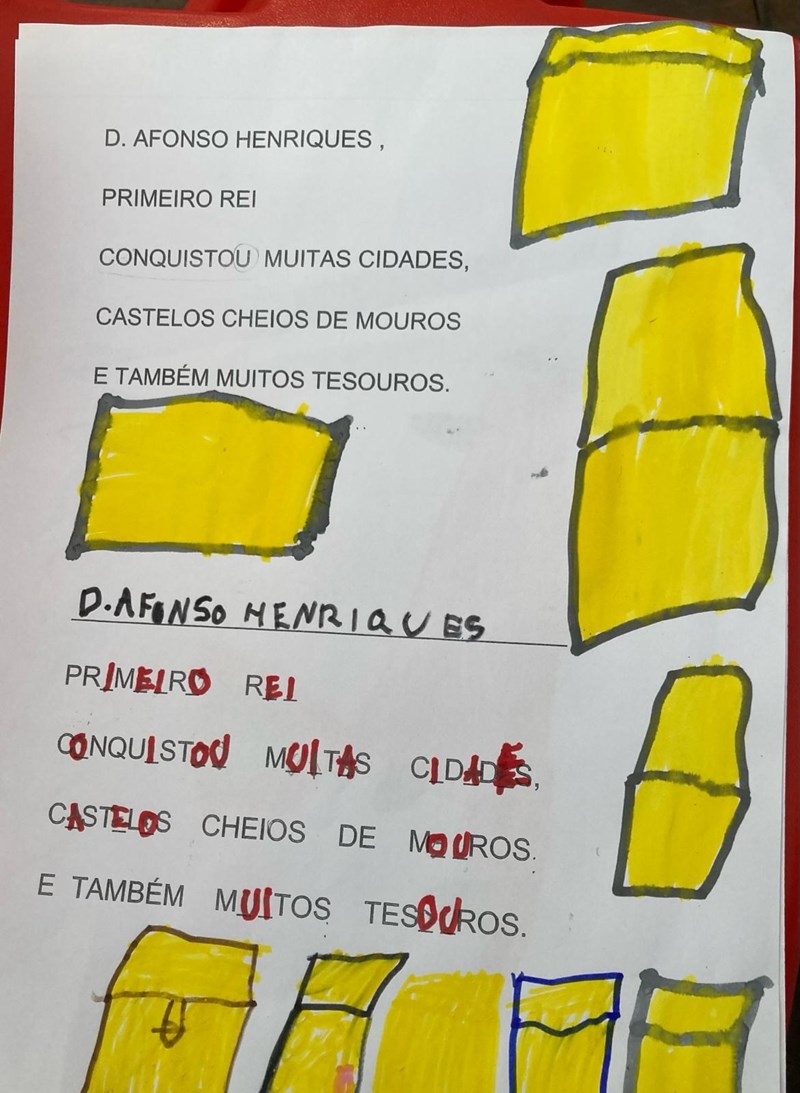 D. AFONSO HENRIQUES ,
PRIMEIRO REI
CONQUISTOU MUITAS CIDADES,
CASTELOS CHEIOS DE MOUROS
E TAMBÉM MUITOS TESOUROS.
D. AFONSO HENRIQUES
PRIMEIRO REI
CONQUISTOU MUITAS CIDADES,
CASTELOS CHEIOS DE MOUROS.
E TAMBÉM MUITOS TESOUROS.